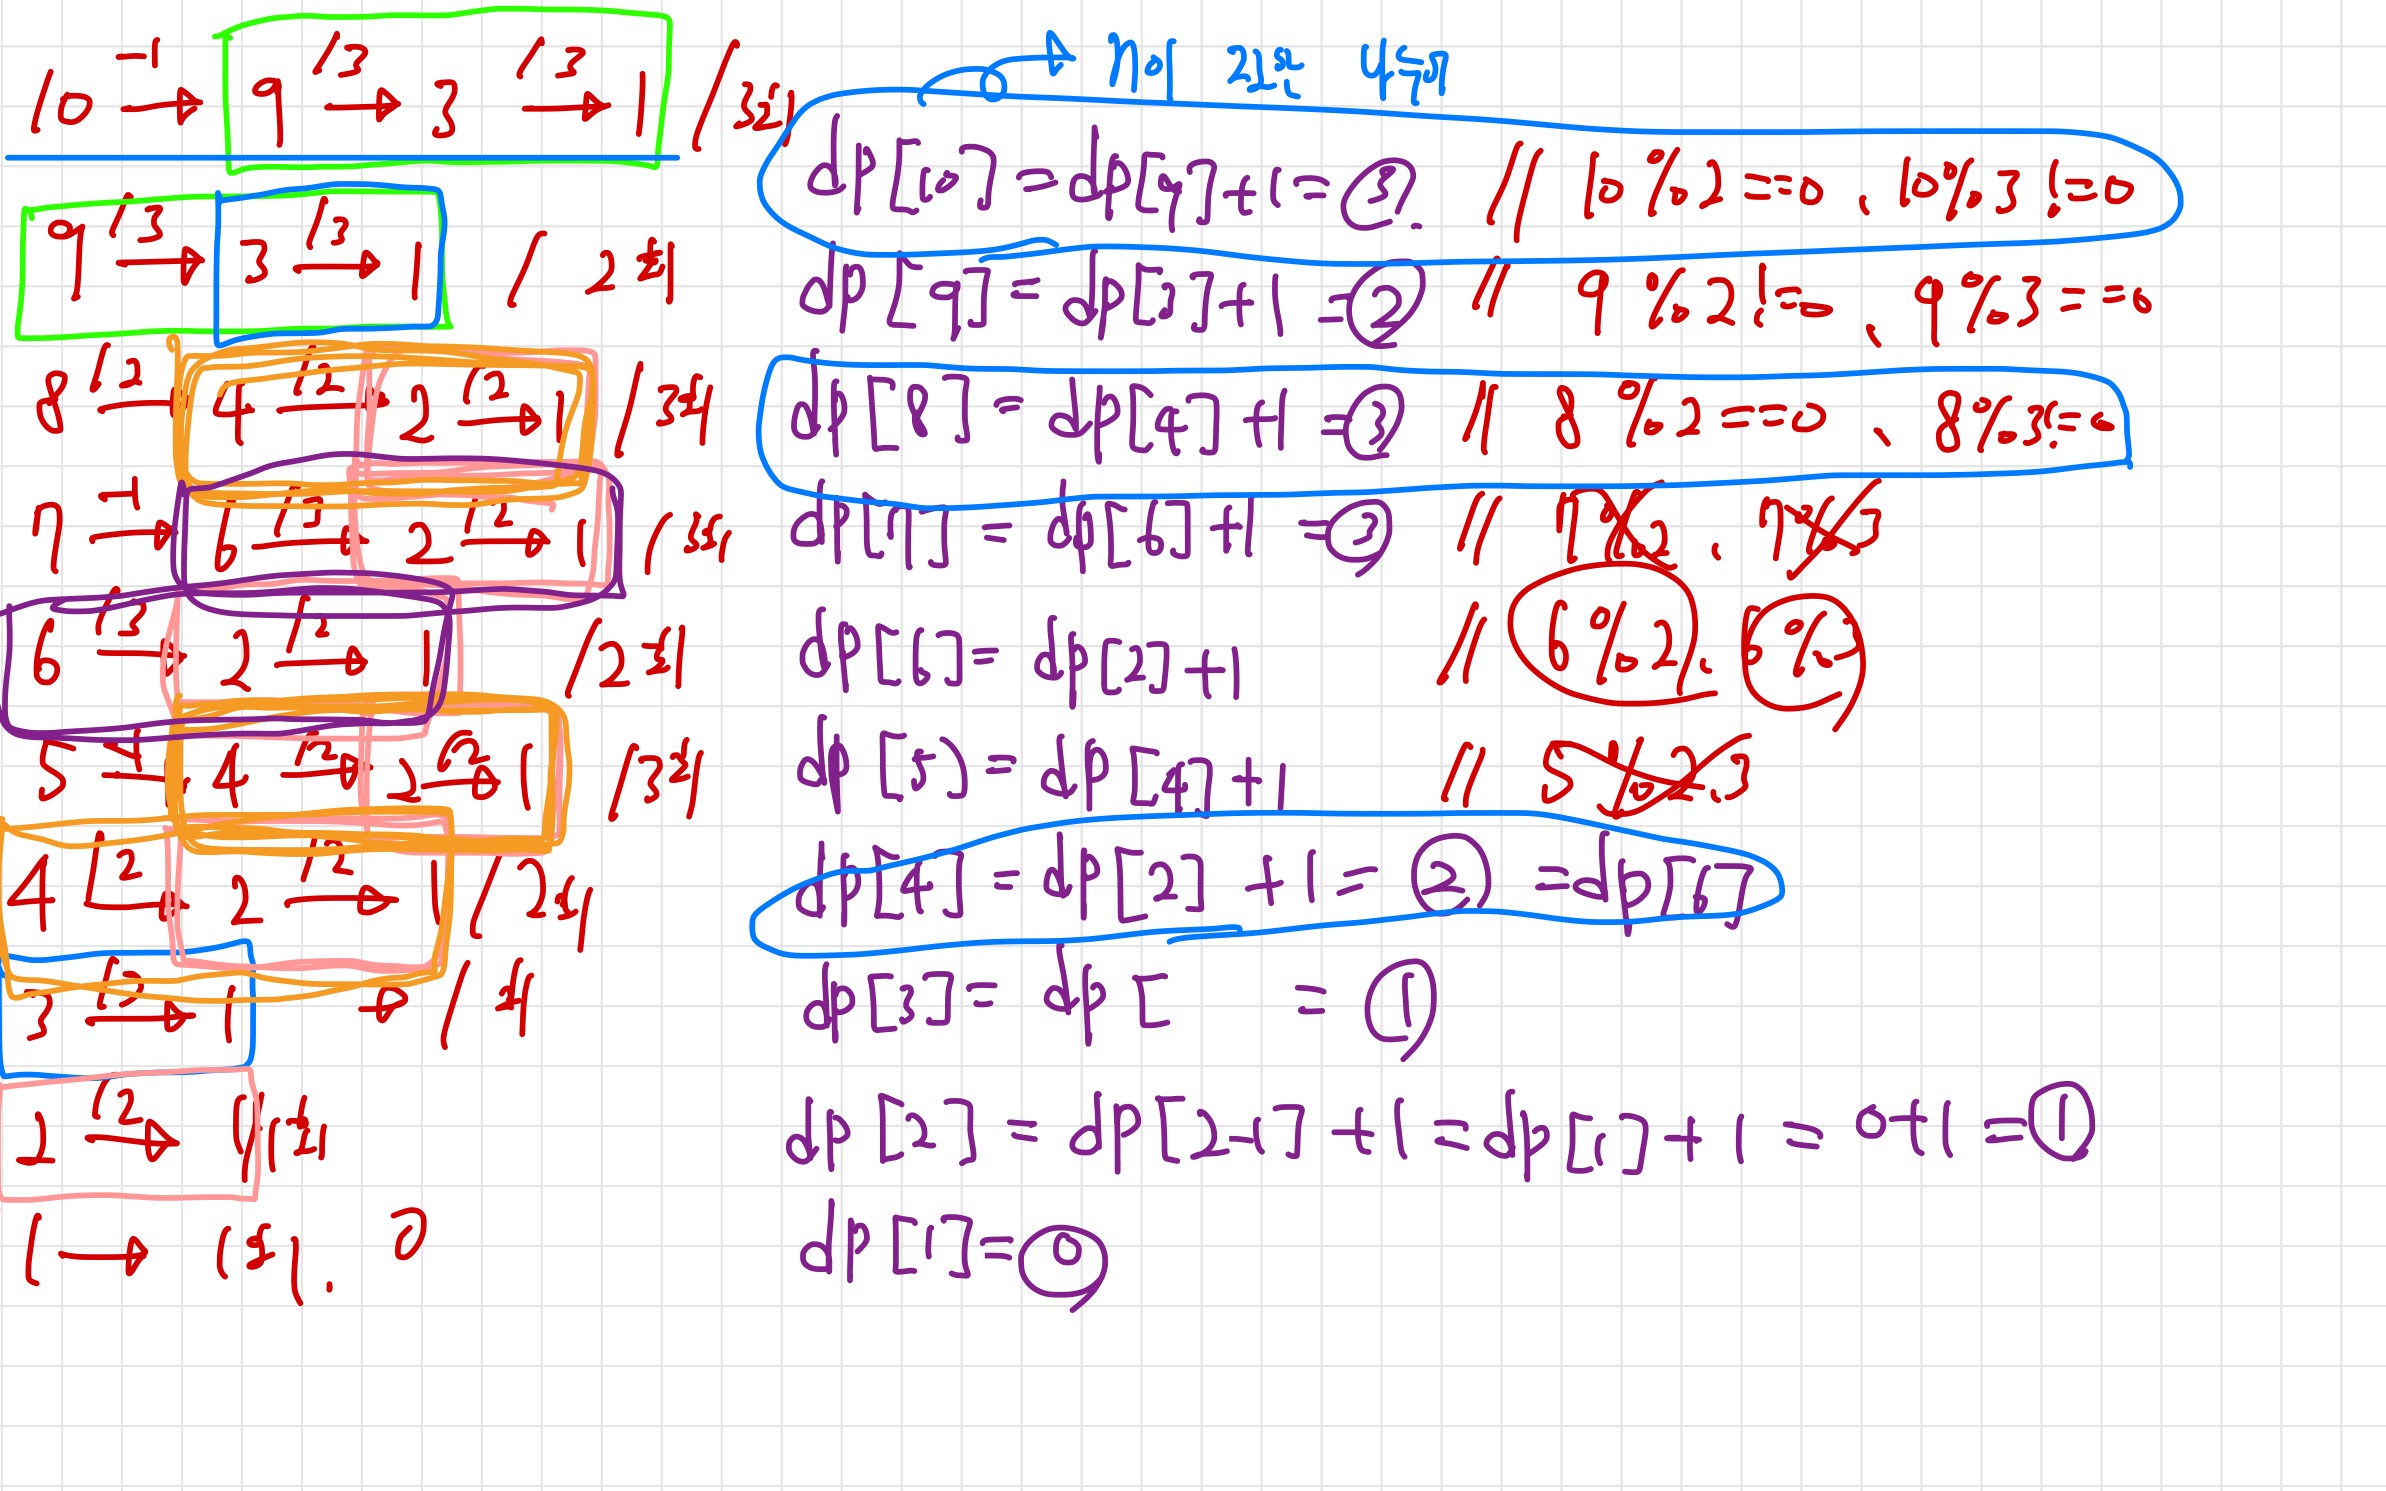 10 -1→ 9 /3→ 3 /3→ 1 / 3번
9 /3→ 3 /3→ 1 / 2번
8 /2→ 4 /2→ 2 /2→ 1 / 3번
7 -1→ 6 /3→ 2 /2→ 1 / 3번
6 /3→ 2 /2→ 1 / 2번
5 -1→ 4 /2→ 2 /2→ 1 / 3번
4 /2→ 2 /2→ 1 / 2번
3 /3→ 1 → 1번
2 /2→ 1 / 1번
1 → 1 0
dp[10] = dp[9] + 1 = 3 // 10 % 2 == 0, 10 % 3 != 0
dp[9] = dp[3] + 1 = 2 // 9 % 2 != 0, 9 % 3 == 0
dp[8] = dp[4] + 1 = 3 // 8 % 2 == 0, 8 % 3 != 0
dp[7] = dp[6] + 1 = 3 // 7 % 2, 7 % 3
dp[6] = dp[2] + 1 // 6 % 2, 6 % 3
dp[5] = dp[4] + 1 // 5 % 2, 3
dp[4] = dp[2] + 1 = 2 = dp[
dp[3] = dp[ = 1
dp[2] = dp[2-1] + 1 = dp[1] + 1 = 0+1 = 1
dp[1] = 0